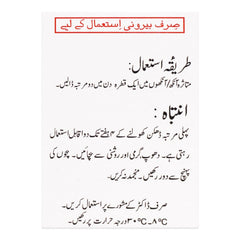 صرف بیرونی استعمال کے لیے
طریقہ استعمال:
متاثرہ آنکھ/آنکھوں میں ایک قطرہ دن میں دو مرتبہ ڈالیں۔
انتباہ:
پہلی مرتبہ ڈھکن کھولنے کے ۴ ہفتے تک دوا قابل استعمال
رہتی ہے۔ دھوپ، گرمی اور روشنی سے بچائیں۔ بچوں کی
پہنچ سے دور رکھیں۔ منجمد نہ کریں۔
صرف ڈاکٹر کے مشورے پر استعمال کریں۔
۸°C-۳۰°C درجہ حرارت پر رکھیں۔